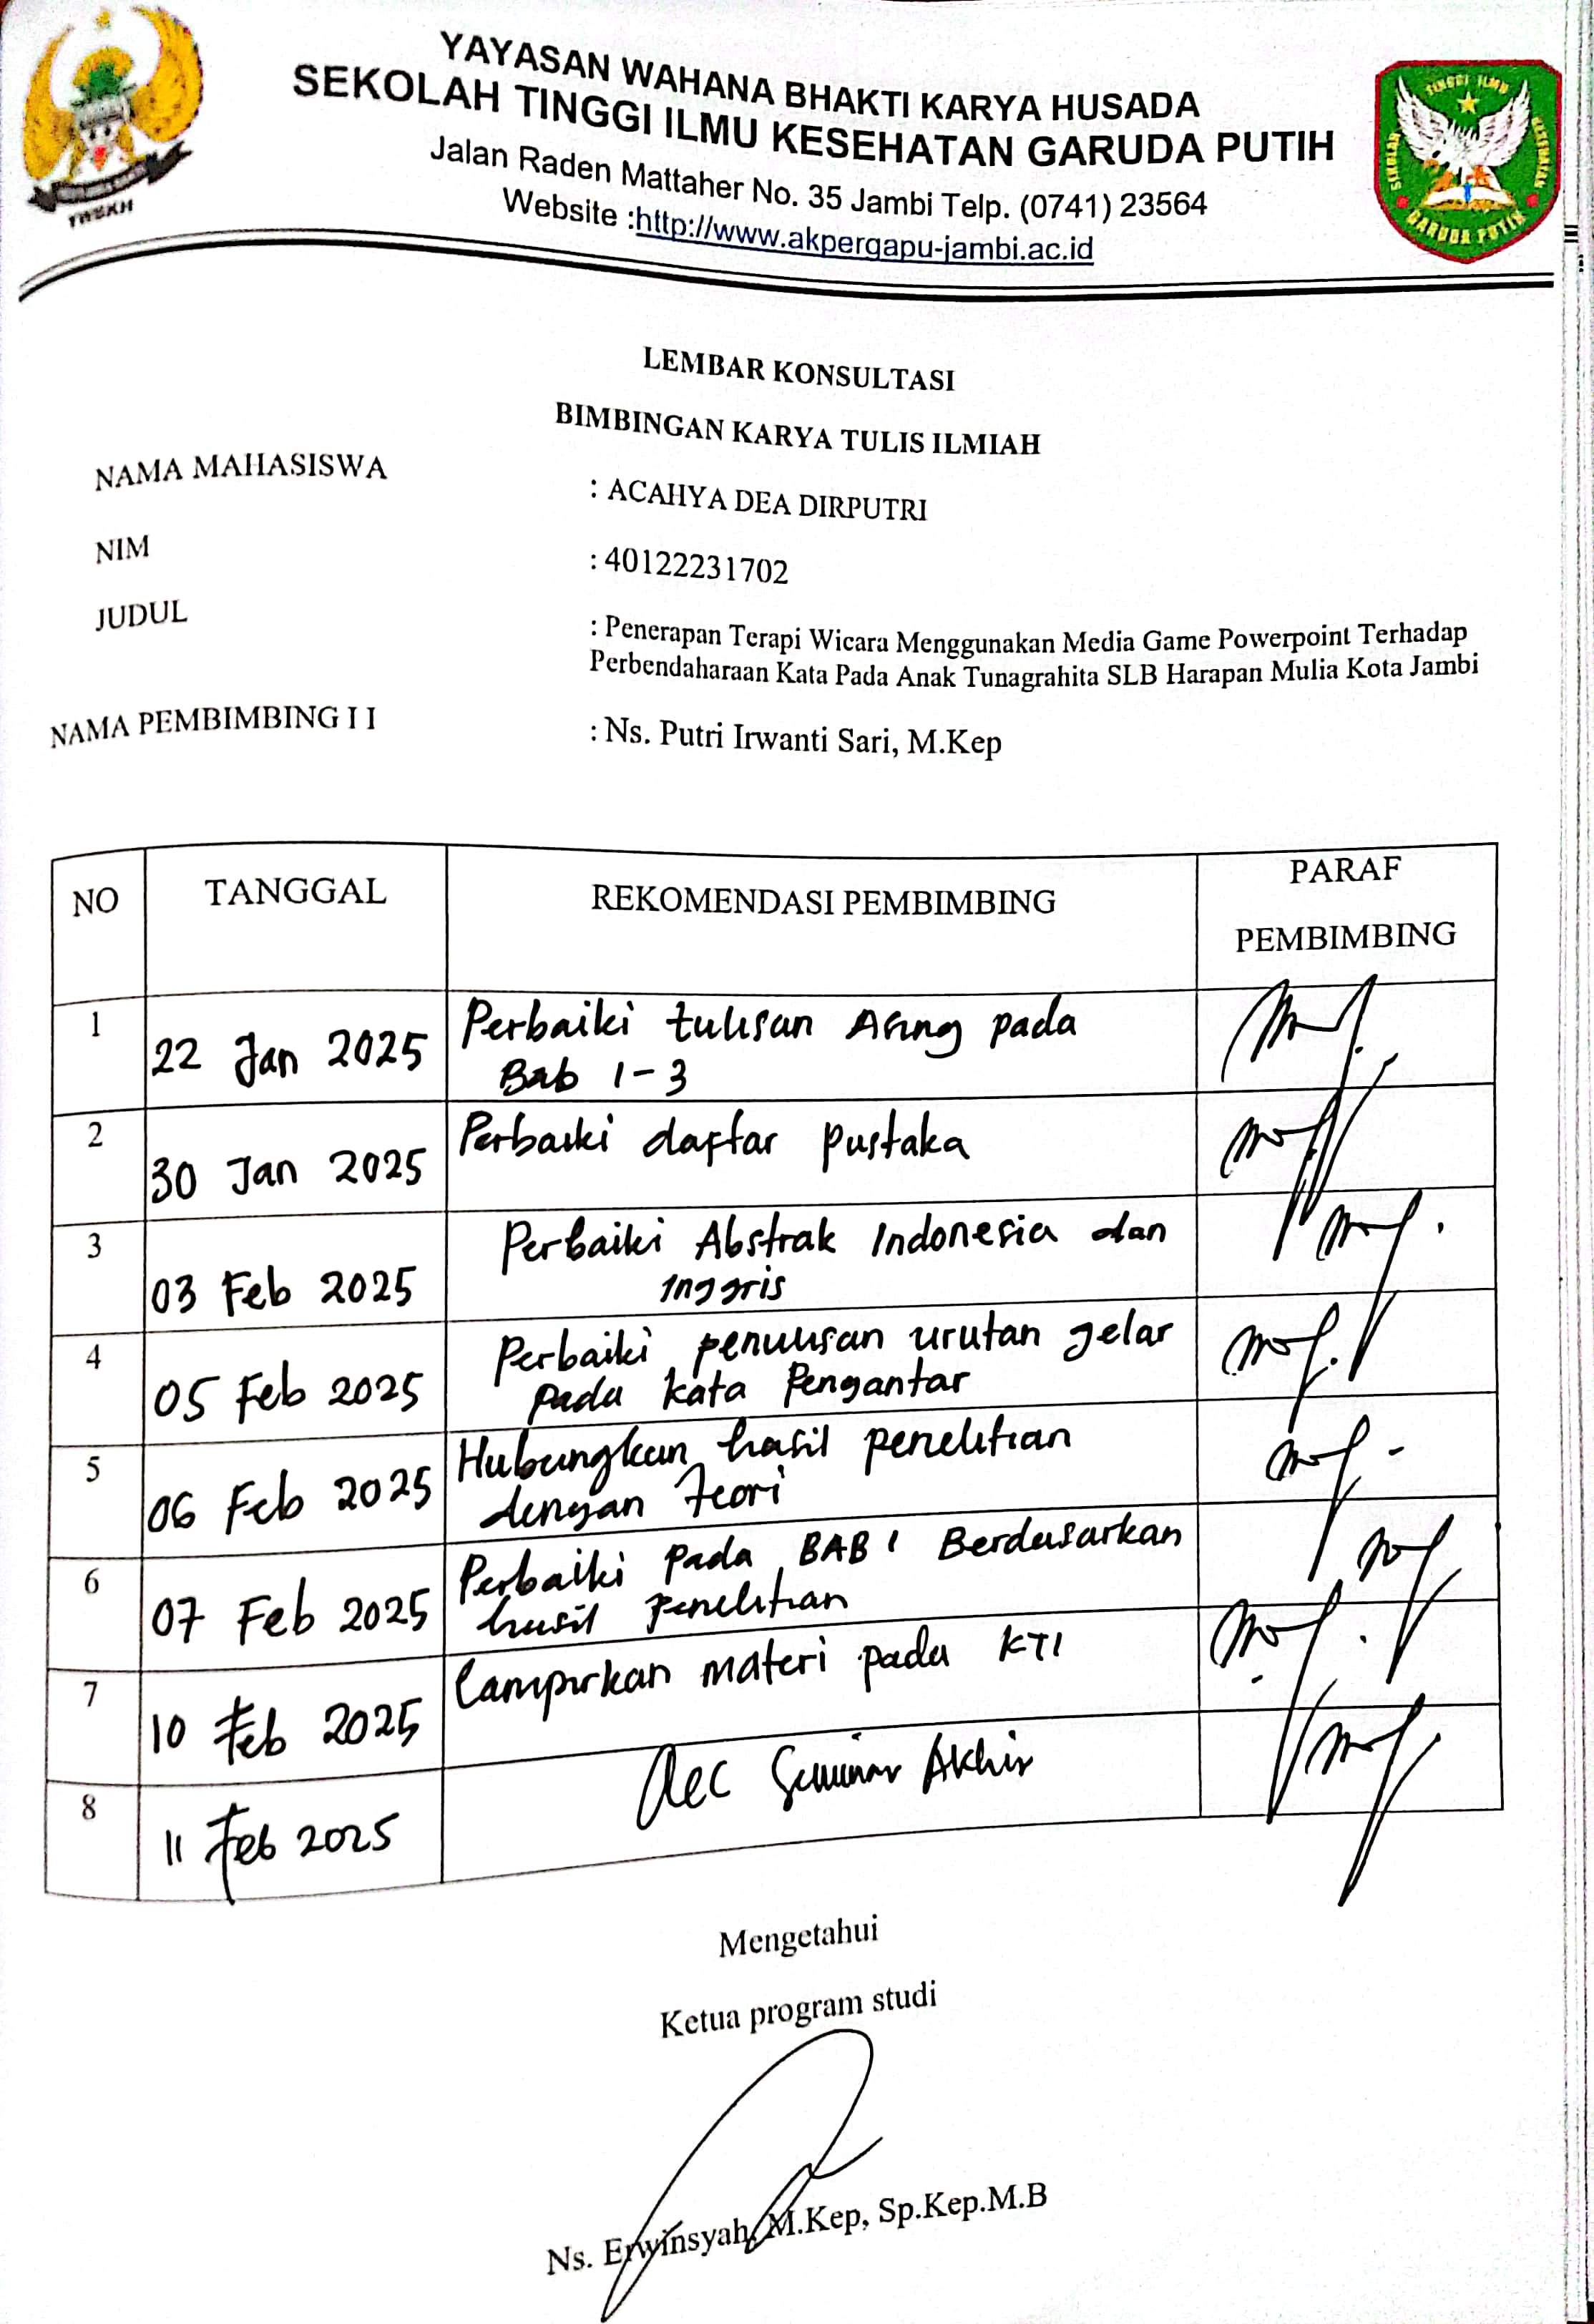 YAYASAN WAHANA BHAKTI KARYA HUSADA
SEKOLAH TINGGI ILMU KESEHATAN GARUDA PUTIH
Jalan Raden Mattaher No. 35 Jambi Telp. (0741) 23564
Website :http://www.akpergapu-jambi.ac.id
YWBKH
TINGGI ILMU
SEKOLAH
KESEHATAN
GARUDA PUTIH
LEMBAR KONSULTASI
BIMBINGAN KARYA TULIS ILMIAH
NAMA MAHASISWA : ACAHYA DEA DIRPUTRI
NIM : 40122231702
JUDUL : Penerapan Terapi Wicara Menggunakan Media Game Powerpoint Terhadap
Perbendaharaan Kata Pada Anak Tunagrahita SLB Harapan Mulia Kota Jambi
NAMA PEMBIMBING I I : Ns. Putri Irwanti Sari, M.Kep
NO TANGGAL REKOMENDASI PEMBIMBING PARAF
PEMBIMBING
1 22 Jan 2025 Perbaiki tulisan Asing pada
Bab 1-3
2 30 Jan 2025 Perbaiki daftar pustaka
3 03 Feb 2025 Perbaiki Abstrak Indonesia dan
Inggris
4 05 Feb 2025 Perbaiki penulisan urutan gelar
pada kata Pengantar
5 06 Feb 2025 Hubungkan hasil penelitian
dengan teori
6 07 Feb 2025 Perbaiki pada BAB 1 Berdasarkan
hasil penelitian
7 10 Feb 2025 Lampirkan materi pada KTI
8 11 Feb 2025 Acc Seminar Akhir
Mengetahui
Ketua program studi
Ns. Erwinsyah, M.Kep, Sp.Kep.M.B